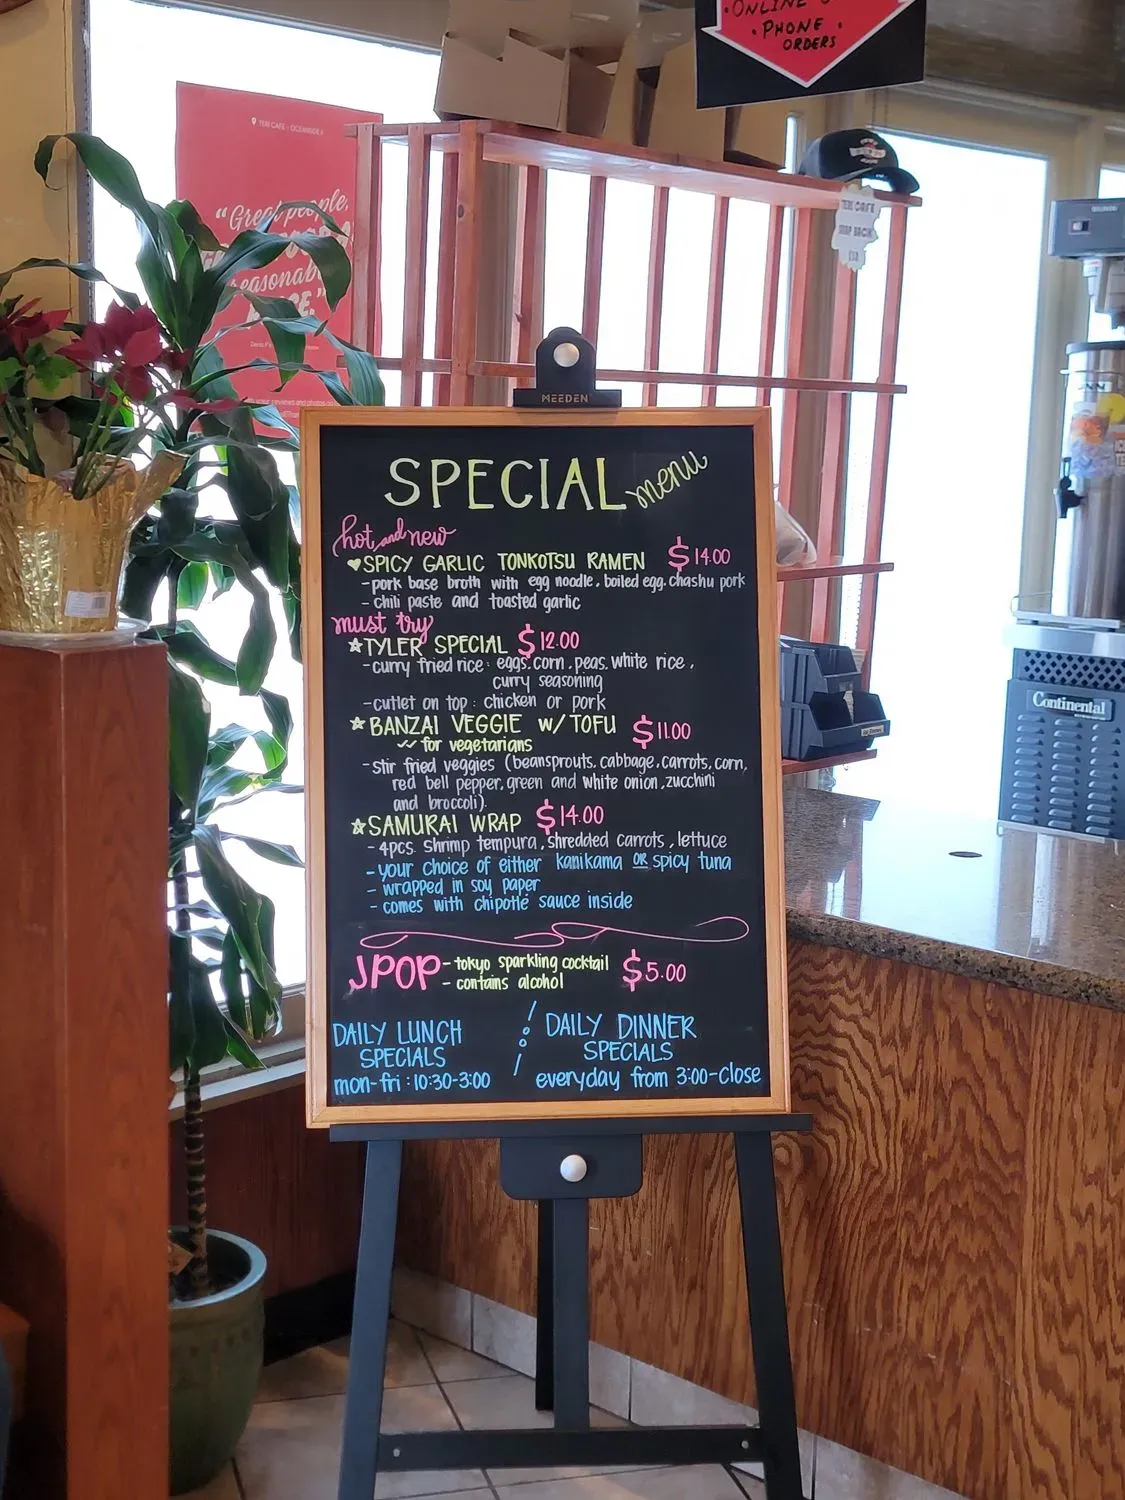 ONLINE
• PHONE •
ORDERS
TERI CAFE - OCEANSIDE
"Great people,
reasonab
TERI CAFE
SNAP BACK
MEEDEN
SPECIAL menu
hot and new
♥SPICY GARLIC TONKOTSU RAMEN $14.00
-pork base broth with egg noodle, boiled egg, chashu pork
- chili paste and toasted garlic
must try
☆TYLER SPECIAL $12.00
-curry fried rice: eggs, corn, peas, white rice,
curry seasoning
-cutlet on top: chicken or pork
☆BANZAI VEGGIE W/TOFU $11.00
✓✓ for vegetarians
-stir fried veggies (beansprouts, cabbage, carrots, corn,
red bell pepper, green and white onion, zucchini
and broccoli).
☆SAMURAI WRAP $14.00
- 4pcs. shrimp tempura, shredded carrots, lettuce
-your choice of either kanikama OR spicy tuna
- wrapped in soy paper
- comes with chipotle sauce inside
JPOP -tokyo sparkling cocktail $5.00
- contains alcohol
DAILY LUNCH
SPECIALS
mon-fri: 10:30-3:00
DAILY DINNER
SPECIALS
everyday from 3:00-close
Continental